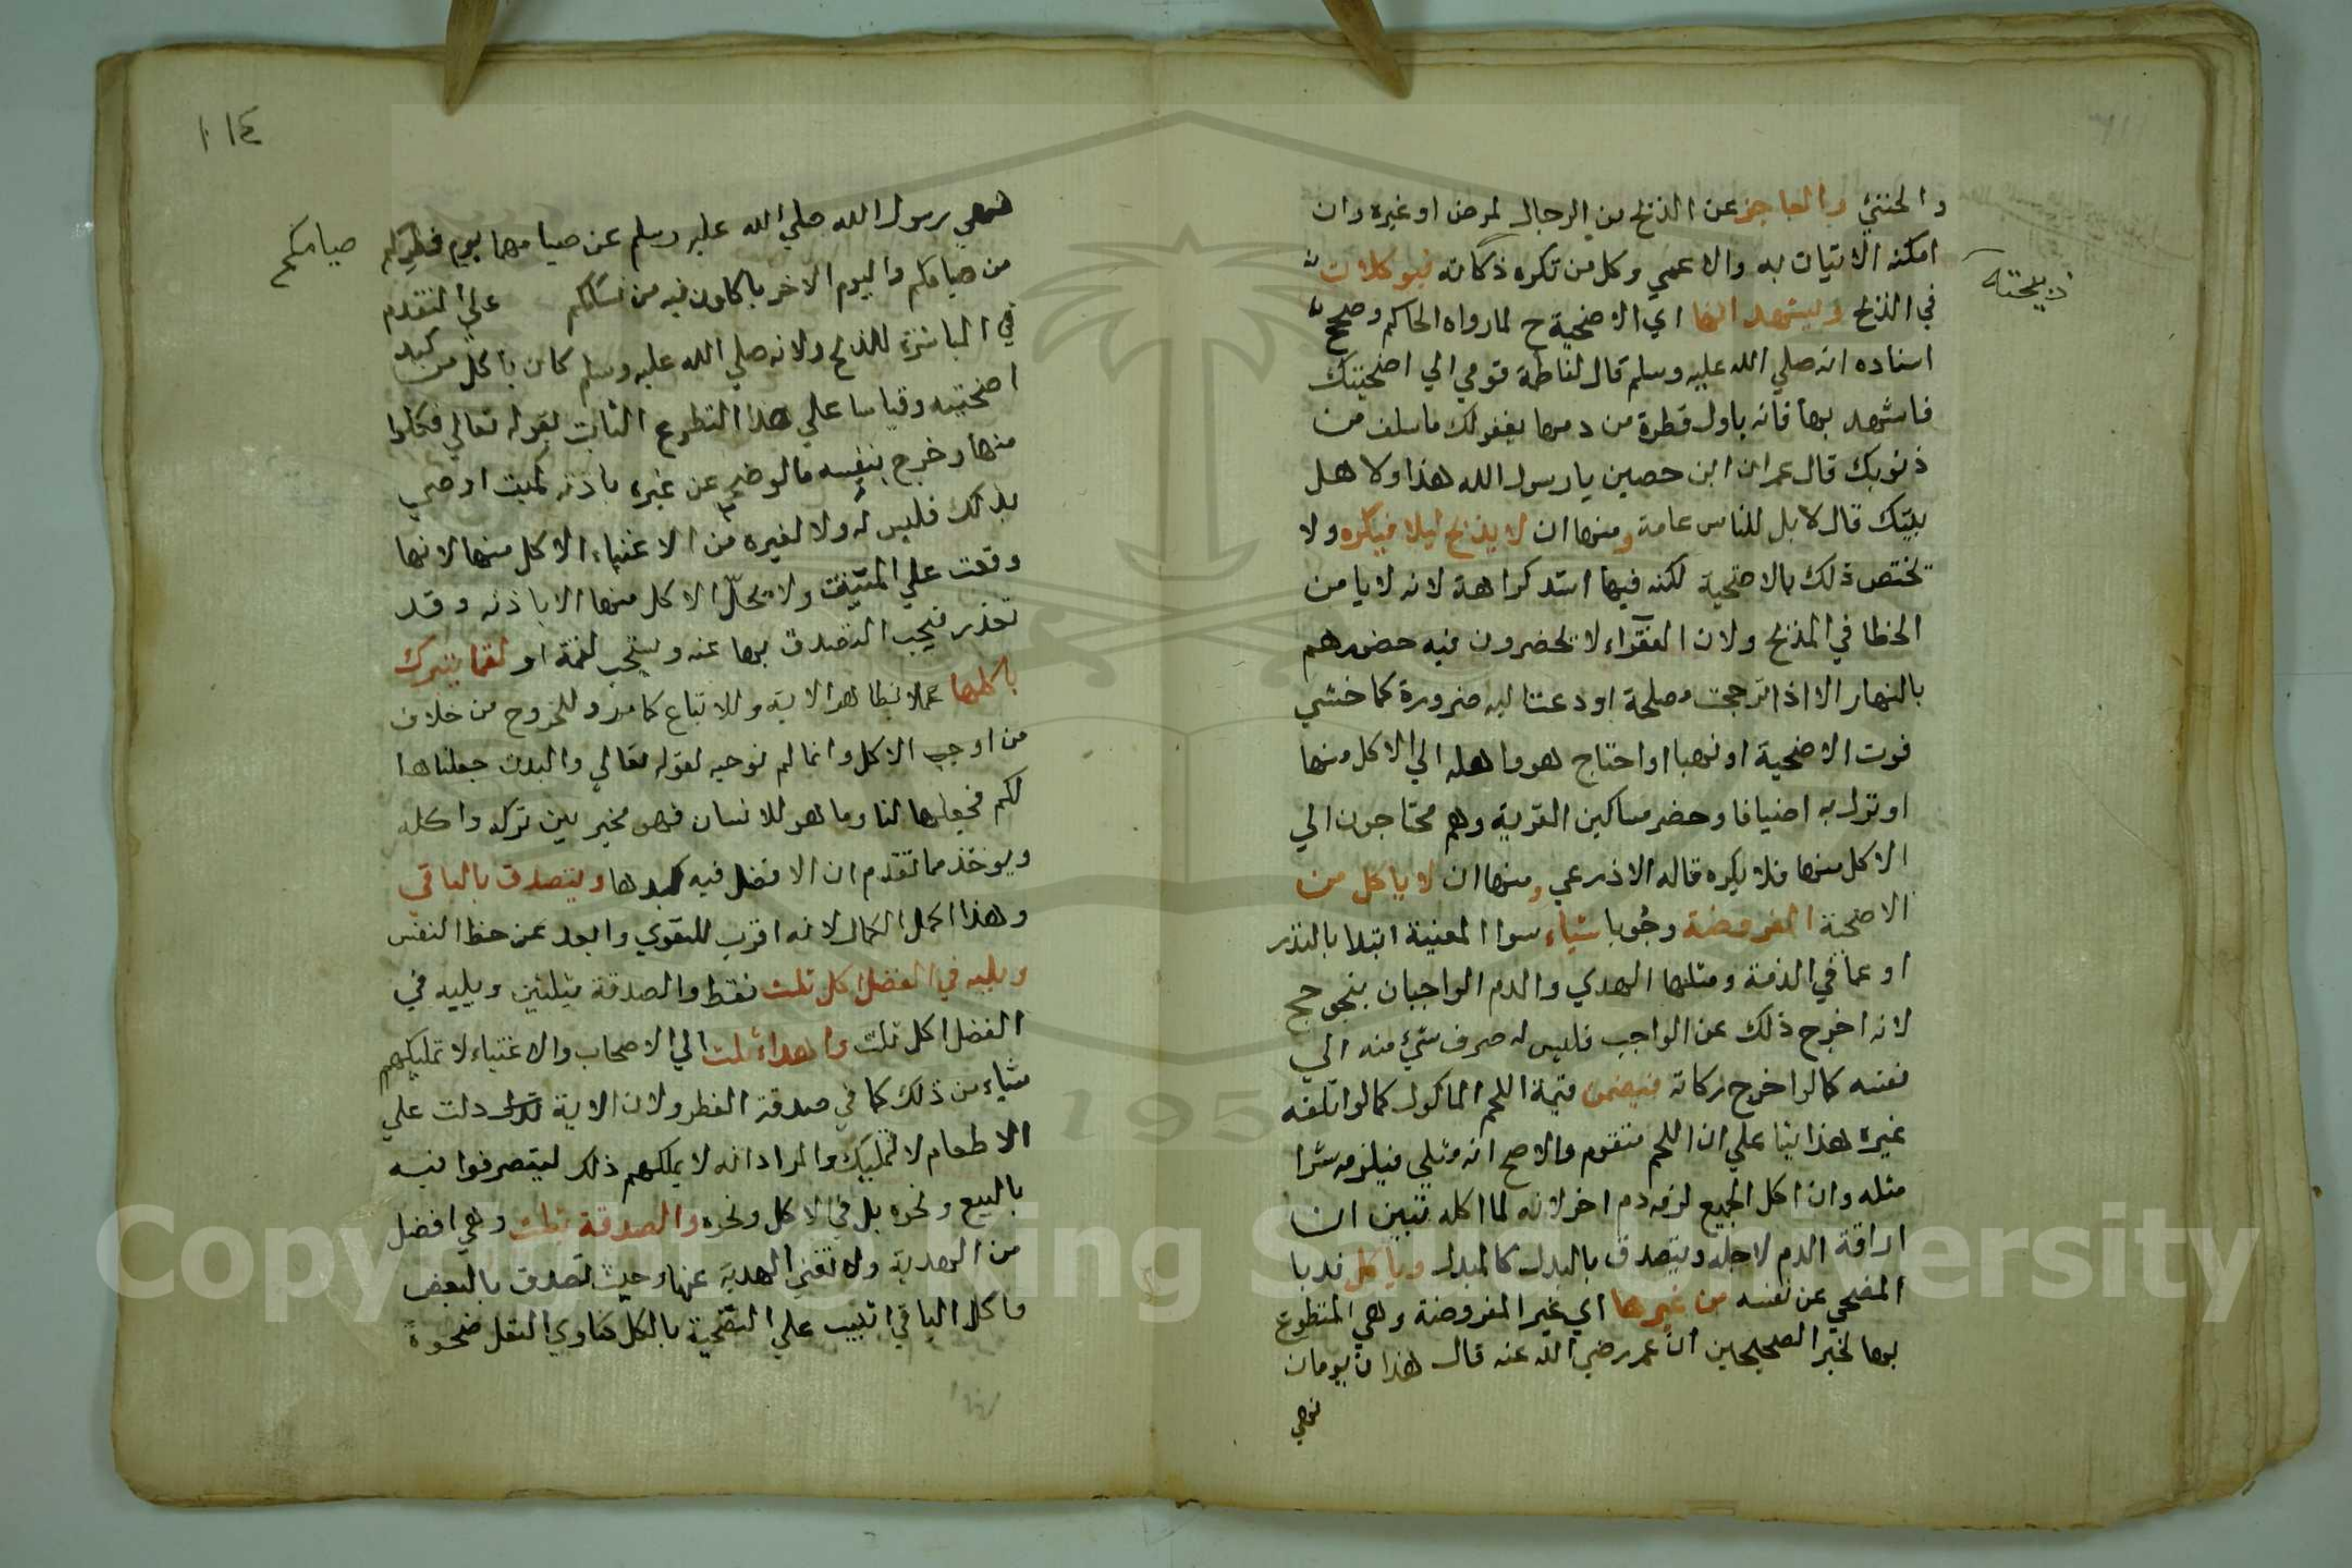 والخنثي والعاجز عن الذبح من الرجال لمرض او غيره وان
امكنه الاتيان به والاعمي وكل من تكره ذكاته فيوكلان
ذبيحته
في الذبح ويشهد انها اي الاضحية ح لما رواه الحاكم وصحح
اسناده انه صلي الله عليه وسلم قال لفاطمة قومي الي اضحيتك
فاشهد بها فانه باول قطرة من دمها يغفر لك ما سلف من
ذنوبك قال عمران ابن حصين يا رسول الله هذا و لاهل
بيتك قال لا بل للناس عامة ومنها ان لا يذبح ليلا فيكره ولا
تختص ذلك بالاضحية لكنه فيها اشد كراهة لانه لا يامن
الخطا في المذبح ولان الفقراء لا يحضرون فيه حضورهم
بالنهار الا اذا ترجحت مصلحة او دعت اليه ضرورة كما خشي
فوت الاضحية او نهبا او احتاج هو واهله الي الاكل منها
او نزل به اضيافا وحضر مساكين القرية وهم محتاجون الي
الاكل منها فلا يكره قاله الاذرعي ومنها ان لا ياكل من
الاضحية المفروضة وجوبا شياء سوا المعينة ابتدا بالنذر
او عما في الذمة ومثلها الهدي والدم الواجبان بنحو حج
لانه اخرج ذلك عن الواجب فليس له صرف شيء منه الي
نفسه كما لو اخرج زكاته فيضمن قيمة اللحم الماكول كما لو اتلفه
غيره هذا بنا علي ان اللحم متقوم والاصح انه مثلي فيلزمه شرا
مثله وان اكل الجميع لزمه دم اخر لانه لما اكله تبين ان
اراقة الدم لاجله ويتصدق بالبدل كالمبدل وياكل ندبا
المضحي عن نفسه من غيرها اي غير المفروضة وهي المتطوع
بها لخبر الصحيحين ان عمر رضي الله عنه قال هذان يومان
نهي
١١٤
نهي رسول الله صلي الله عليه وسلم عن صيامهما يوم فطركم
صيامكم
من صيامكم واليوم الاخر تاكلون فيه من نسككم علي المتقدم
في المباشرة للذبح ولانه صلي الله عليه وسلم كان ياكل من كبد
اضحيته وقياسا علي هذا التطوع الثابت بقوله تعالي فكلوا
منها وخرج بنفسه ما لو ضحي عن غيره باذنه كميت اوصي
بذلك فليس له ولا لغيره من الاغنياء الاكل منها لانها
وقعت علي الميت ولا يحل الاكل منها الا باذنه وقد
تعذر فيجب التصدق بها عنه ويستحب لقمة او لقما يتبرك
باكلها عملا بظاهر الاية وللاتباع كما مر وللخروج من خلاف
من اوجب الاكل وانما لم نوجبه لقوله تعالي والبدن جعلناها
لكم فجعلها لنا وما هو للانسان فهو مخير بين تركه واكله
ويوخذ مما تقدم ان الافضل فيه كبدها ويتصدق بالباقي
وهذا اكمل الكمال لانه اقرب للتقوي وابعد عن حظ النفس
ويليه في الفضل اكل ثلث فقط والصدقة بثلثين ويليه في
الفضل اكل ثلث واهداء ثلث الي الاصحاب والاغنياء لا تمليكهم
شياء من ذلك كما في صدقة الفطر ولان الاية دلت علي
الاطعام لا تمليك والمراد انه لا يملكهم ذلك ليتصرفوا فيه
بالبيع ونحوه بل في الاكل ونحوه والصدقة ثلث وهي افضل
من الهدية ولا تغني الهدية عنها وحيث تصدق بالبعض
واكل الباقي اثيب علي التضحية بالكل كناوي النفل ضحوة
Copyright © King Saud University
195